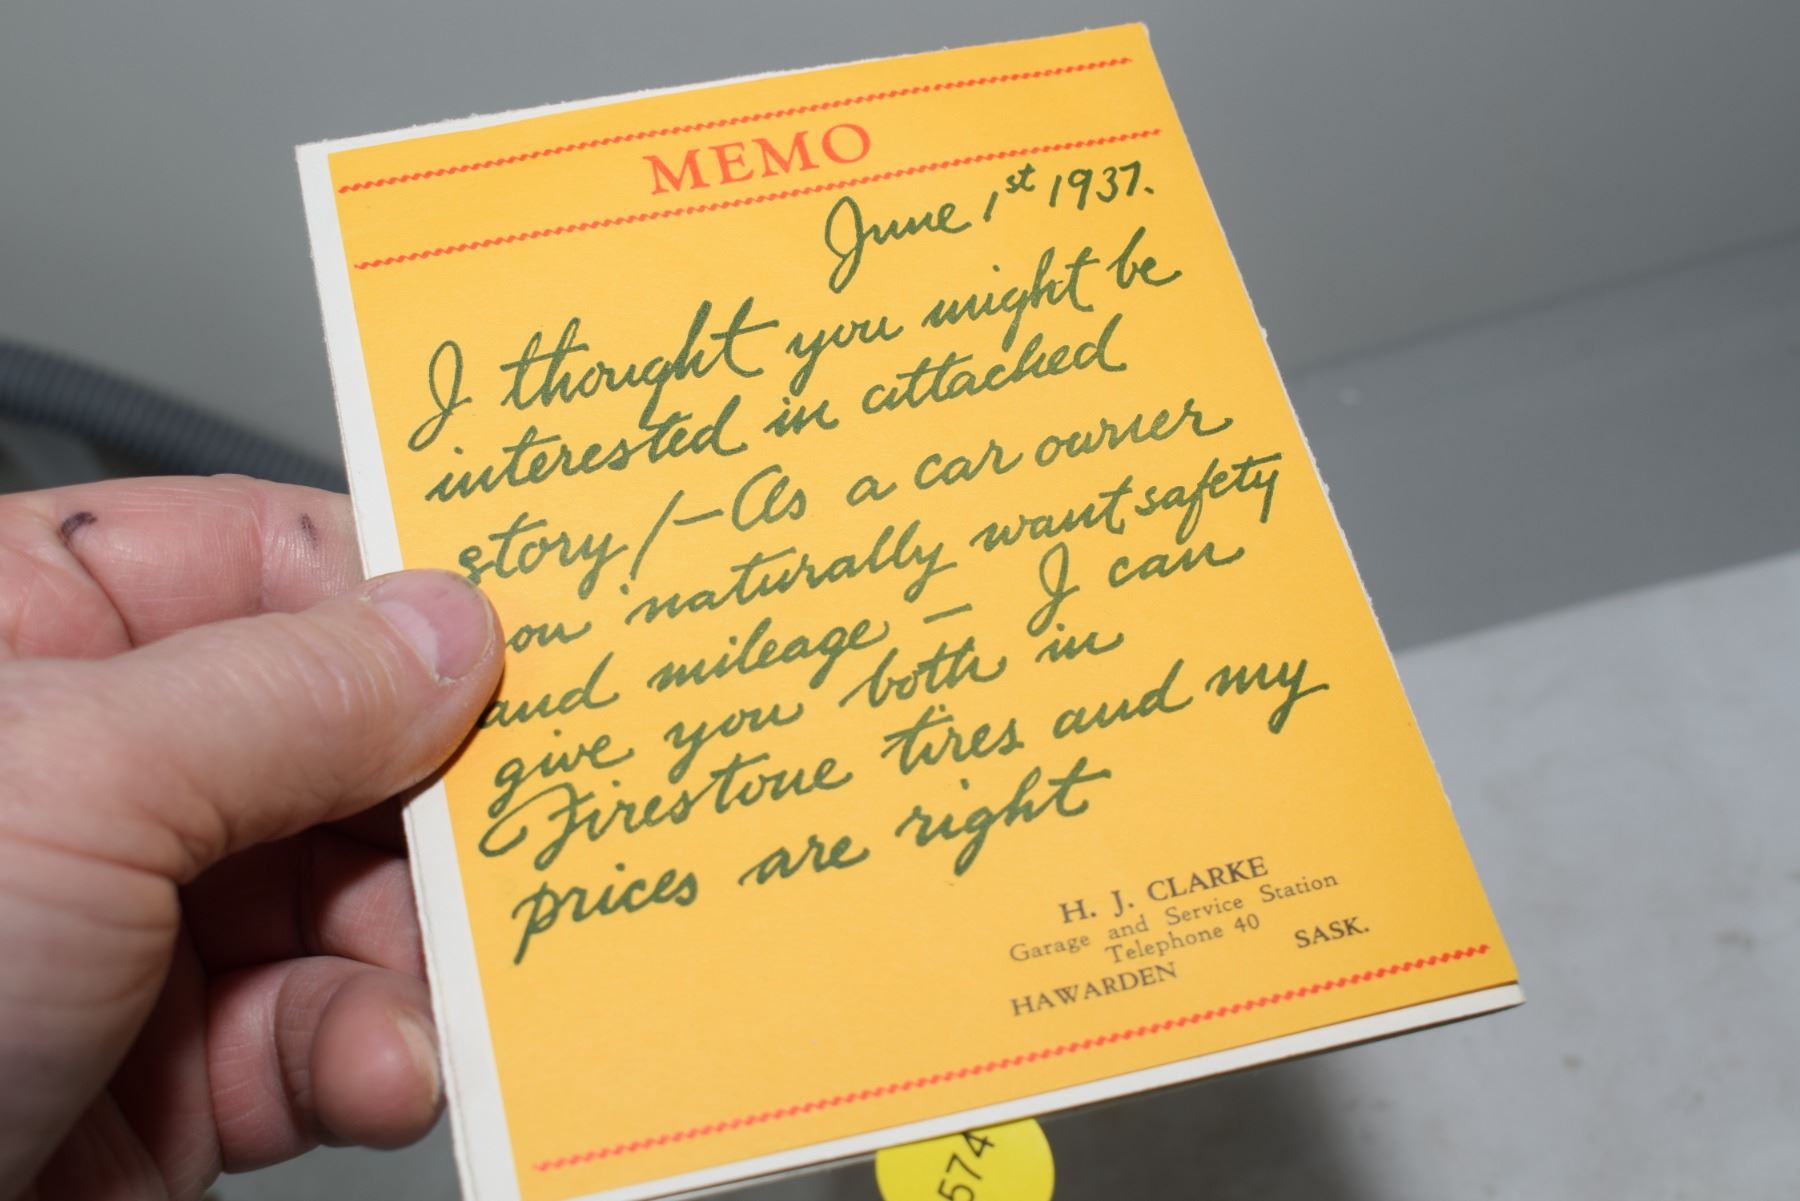 MEMO
June 1st 1937.
I thought you might be
interested in attached
story/-As a car owner
ou naturally want safety
and mileage - I can
give you both in
Firestone tires and my
prices are right
H. J. CLARKE
Garage and Service Station
Telephone 40
HAWARDEN SASK.
574